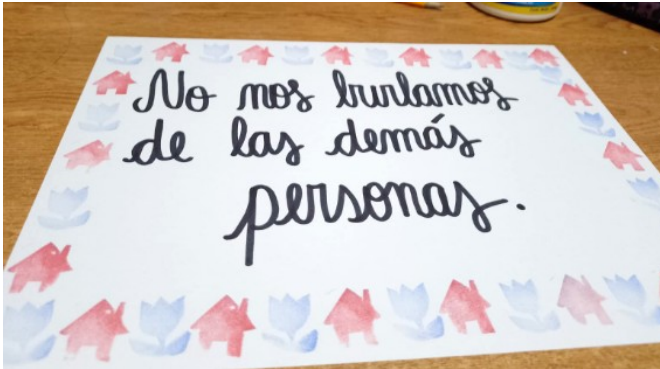 No nos burlamos
de las demás
personas.